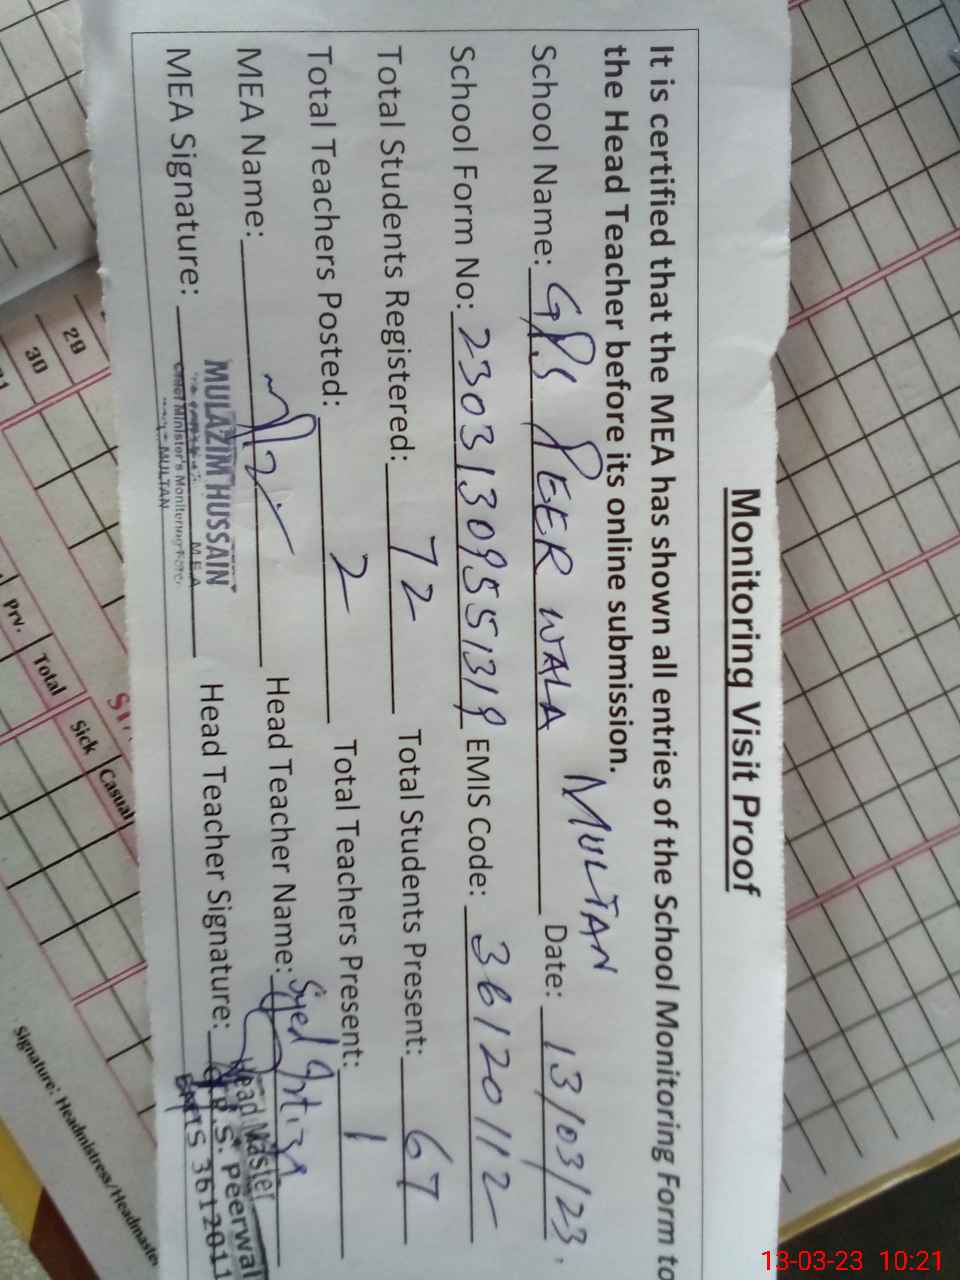 Monitoring Visit Proof
It is certified that the MEA has shown all entries of the School Monitoring Form to
the Head Teacher before its online submission.
MULTAN
School Name: G.P.S PEER WALA Date: 13/03/23.
School Form No: EMIS Code: 36120112
Total Students Registered: 72 Total Students Present: 67
Total Teachers Posted: 2 Total Teachers Present: 1
MEA Name: Head Teacher Name: Syed
MEA Signature: Head Teacher Signature:
MULAZIM HUSSAIN
M.E.A
Chief Minister's Monitoring Force
MULTAN
Head Master
G.P.S. Peerwal
3612011
29
30
Prv. Total Sick Casual
Signature: Headmistress/Headmaste
13-03-23 10:21